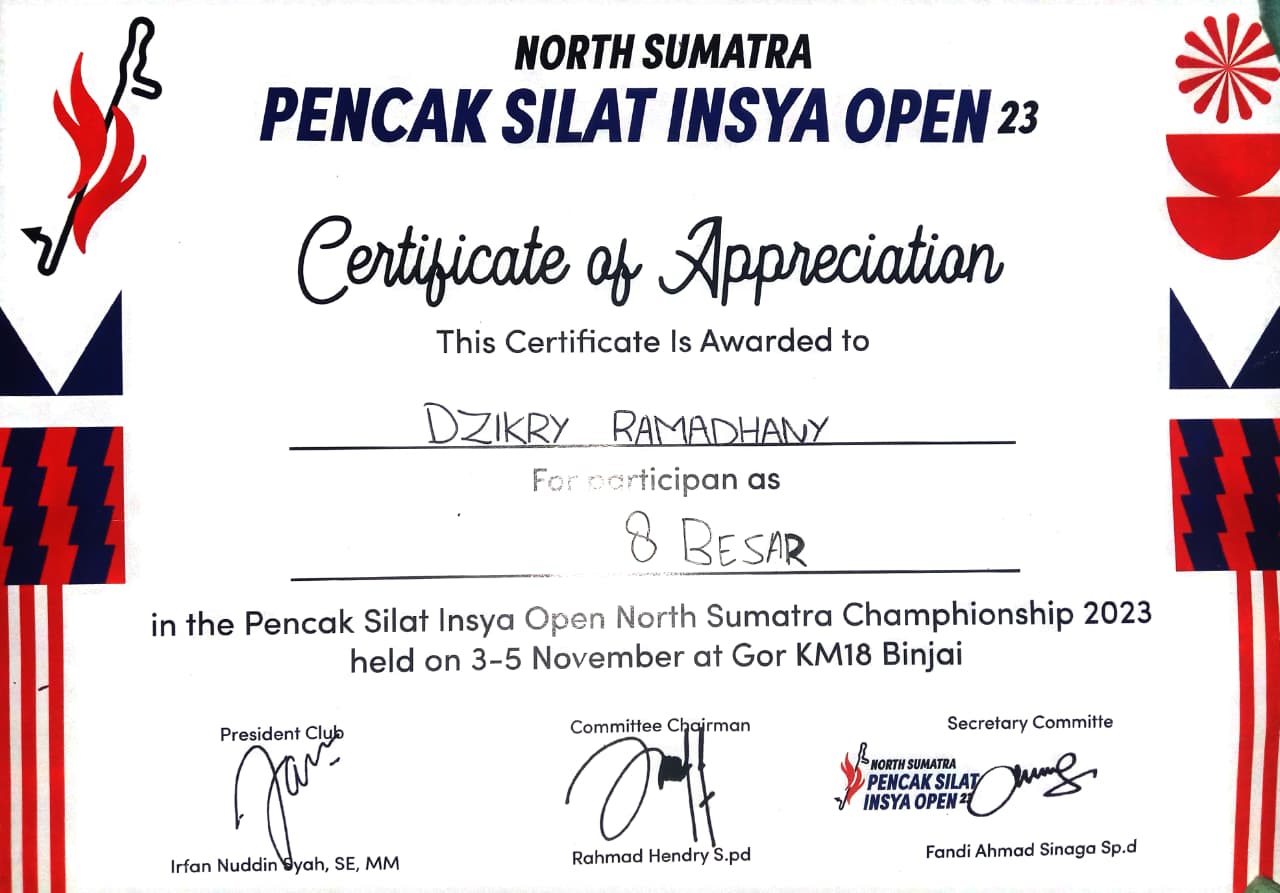 NORTH SUMATRA
PENCAK SILAT INSYA OPEN 23
Certificate of Appreciation
This Certificate Is Awarded to
DZIKRY RAMADHANY
For participan as
8 BESAR
in the Pencak Silat Insya Open North Sumatra Champhionship 2023
held on 3-5 November at Gor KM18 Binjai
President Club
Irfan Nuddin Syah, SE, MM
Committee Chairman
Rahmad Hendry S.pd
Secretary Committe
NORTH SUMATRA
PENCAK SILAT
INSYA OPEN 23
Fandi Ahmad Sinaga Sp.d